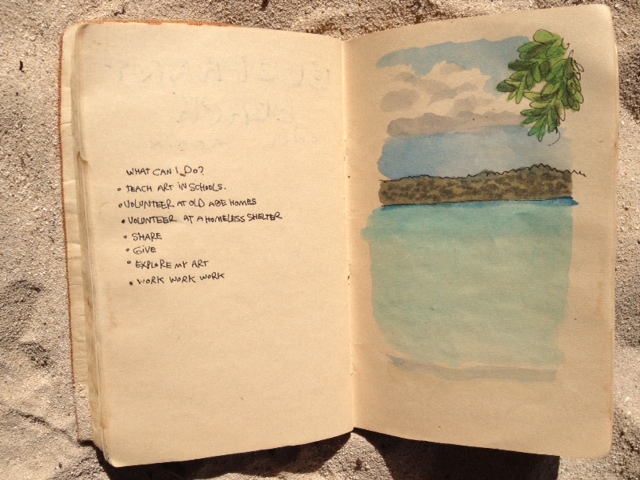 WHAT CAN I DO?
• TEACH ART IN SCHOOLS.
• VOLUNTEER AT OLD AGE HOMES
• VOLUNTEER AT A HOMELESS SHELTER
• SHARE
• GIVE
• EXPLORE MY ART
• WORK WORK WORK